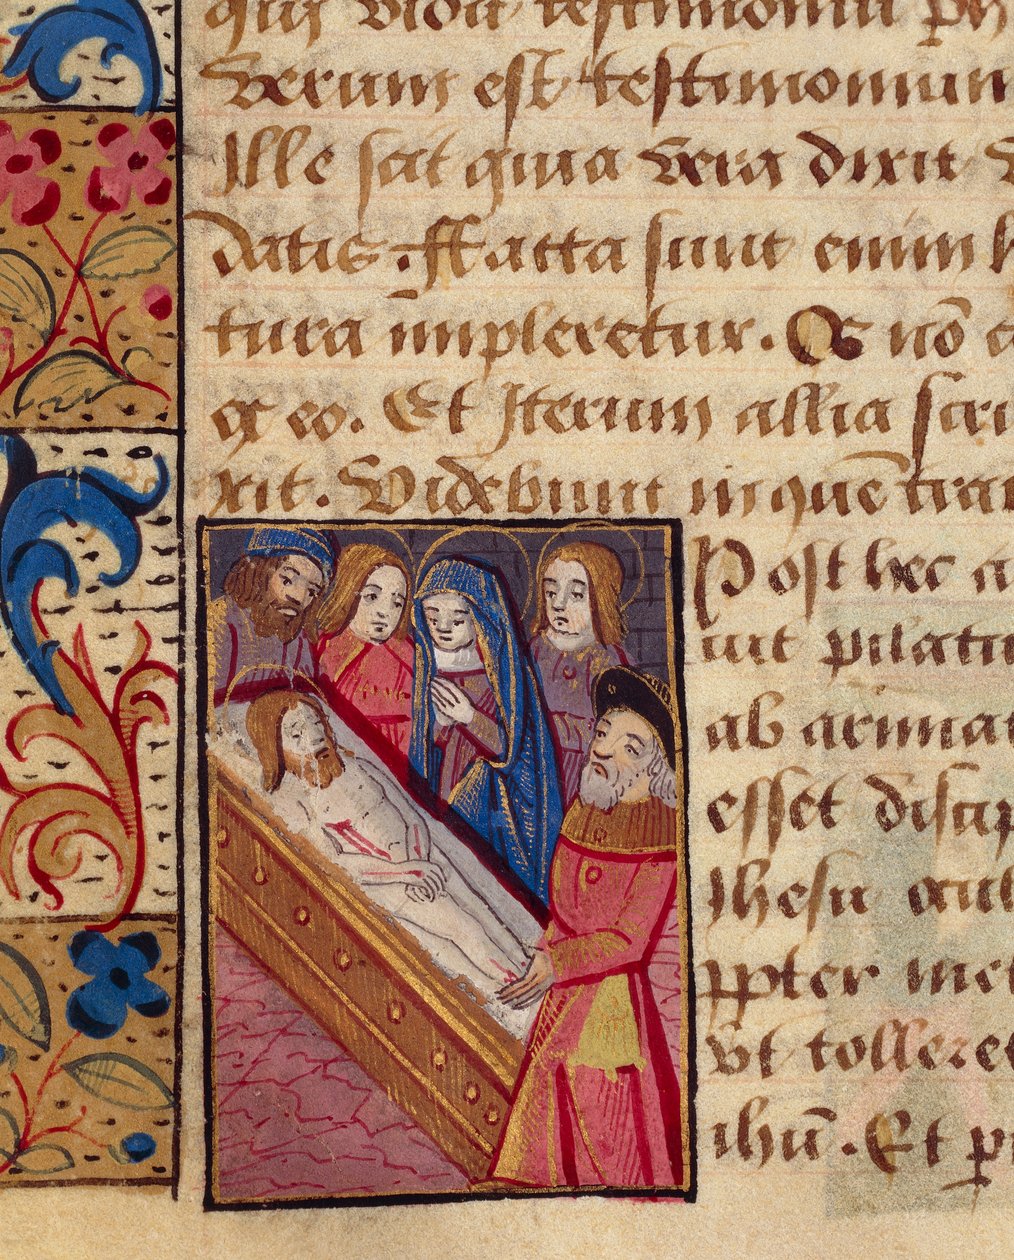 qui vidit testimonium ph
Verum est testimonium
Ille scit quia vera dixit
datis. ffacta sunt enim
tura impleretur. Os nõ
ex eo. Et Iterum allia scri
xit. Videbunt in quē tran
Post hec a
uit pilatu
ab arimat
esset discip
Ihesu
ppter met
vt tolleret
ihū. Et p